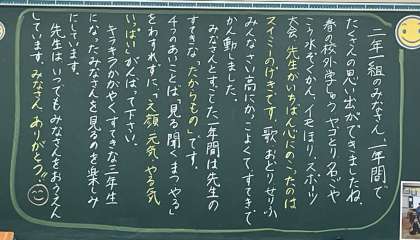 二年一組のみなさん、一年間で
たくさんの思い出ができましたね。
春の校外学しゅう、ヤゴとり、名ごや
こう水ぞくかん、イモほり、スポーツ
大会、先生がいちばん心にのこったのは
スイミーのげきです。歌、おどり、せりふ
みんなさい高にかっこよくてすてきで
かん動しました。
みんなとすごした一年間は先生の
すてきな「たからもの」です。
4つのあいことば「見る 聞く まつ やる」
をわすれずに、「え顔 元気 やる気
いっぱい」でがんばって下さい。
キラキラかがやくすてきな三年生
になったみなさんを見るのを楽しみ
にしています。
先生はいつでもみなさんをおうえん
しています。みなさん ありがとう!!